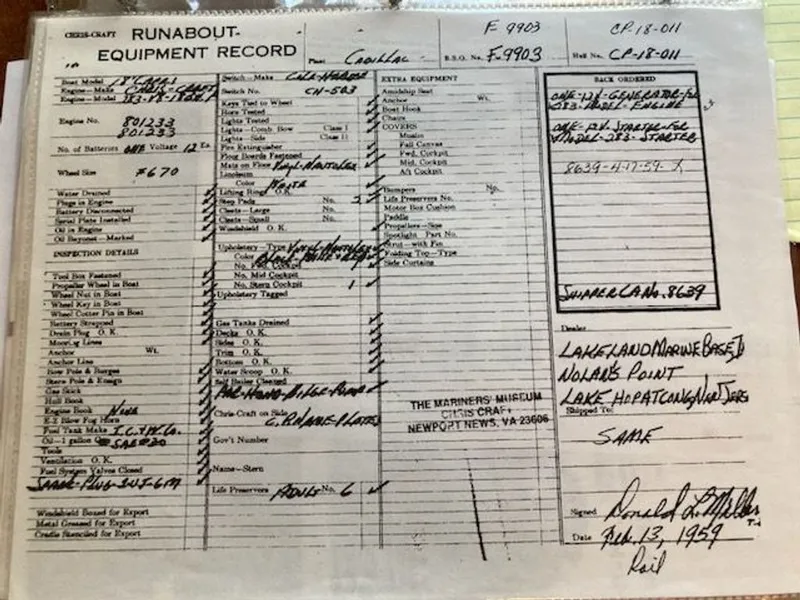 CHRIS-CRAFT RUNABOUT-
EQUIPMENT RECORD
F-9903
CP-18-011
Plant CADILLAC
B.S.O. No. F-9903
Hull No. CP-18-011
Boat Model 18' CAPRI
Engine—Make CHRIS-CRAFT
Engine—Model 283-V8-185HP
Engine No. 801233
801233
No. of Batteries ONE Voltage 12 Ea.
Wheel Size #670
Water Drained
Plugs in Engine
Battery Disconnected
Serial Plate Installed
Oil in Engine
Oil Bayonet—Marked
INSPECTION DETAILS
Tool Box Fastened
Propeller Wheel in Boat
Wheel Nut in Boat
Wheel Key in Boat
Wheel Cotter Pin in Boat
Battery Strapped
Drain Plug O. K.
Mooring Lines
Anchor Wt.
Anchor Line
Bow Pole & Burgee
Stern Pole & Ensign
Gas Stick
Hull Book
Engine Book NONE
E-Z Blow Fog Horn
Fuel Tank Make
Oil—1 gallon SAE#30
Tools
Ventilation O. K.
Fuel System Valves Closed
Windshield Boxed for Export
Metal Greased for Export
Cradle Stenciled for Export
Switch—Make COLE-HERSEE
Switch No. CH-503
Keys Tied to Wheel
Horn Tested
Lights Tested
Lights—Comb. Bow Class I
Lights—Side Class II
Fire Extinguisher
Floor Boards Fastened
Mats on Floor
Linoleum
Color WHITE
Lifting Rings O. K.
Step Pads No. 2
Cleats—Large No.
Cleats—Small No.
Windshield O. K.
Upholstery—Type
Color
No. Fwd. Cockpit
No. Mid Cockpit
No. Stern Cockpit 1
Upholstery Tagged
Gas Tanks Drained
Decks O. K.
Sides O. K.
Trim O. K.
Bottom O. K.
Water Scoop O. K.
Self Bailer Cleaned
ONE-HAND-BILGE-PUMP
Chris-Craft on Side
C.C. NAME-PLATES
Gov't Number
Name—Stern
Life Preservers ADULT No. 6
EXTRA EQUIPMENT
Amidship Seat
Anchor Wt.
Boat Hook
Chairs
COVERS
Full Canvas
Fwd. Cockpit
Mid. Cockpit
Aft Cockpit
Bumpers No.
Life Preservers No.
Motor Box Cushion
Paddle
Propellers—Size
Spotlight Part No.
Strut—with Fin
Folding Top—Type
Side Curtains
THE MARINERS' MUSEUM
CHRIS CRAFT
NEWPORT NEWS, VA 23606
BACK ORDERED
ONE-12V-GENERATOR-FOR
283-MODEL-ENGINE
ONE-12V STARTER-FOR
MODEL-283-STARTER
8639-4-17-59- X
SHIPPER CA No. 8639
Dealer
LAKELAND MARINE BASE
NOLAN'S POINT
LAKE HOPATCONG, NEW JERS
Shipped To:
SAME
Signed Donald L. Miller
Date Feb. 13, 1959
Rail